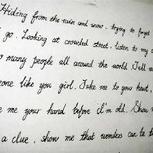 Hiding from the rain and snow, trying to forget
go. Looking at crowded street, listen to my o
o many people all around the world. Tell m
eone like you girl. Take me to your heart,
e me your hand before I'm old. Show
a clue, show me that wonders can be t